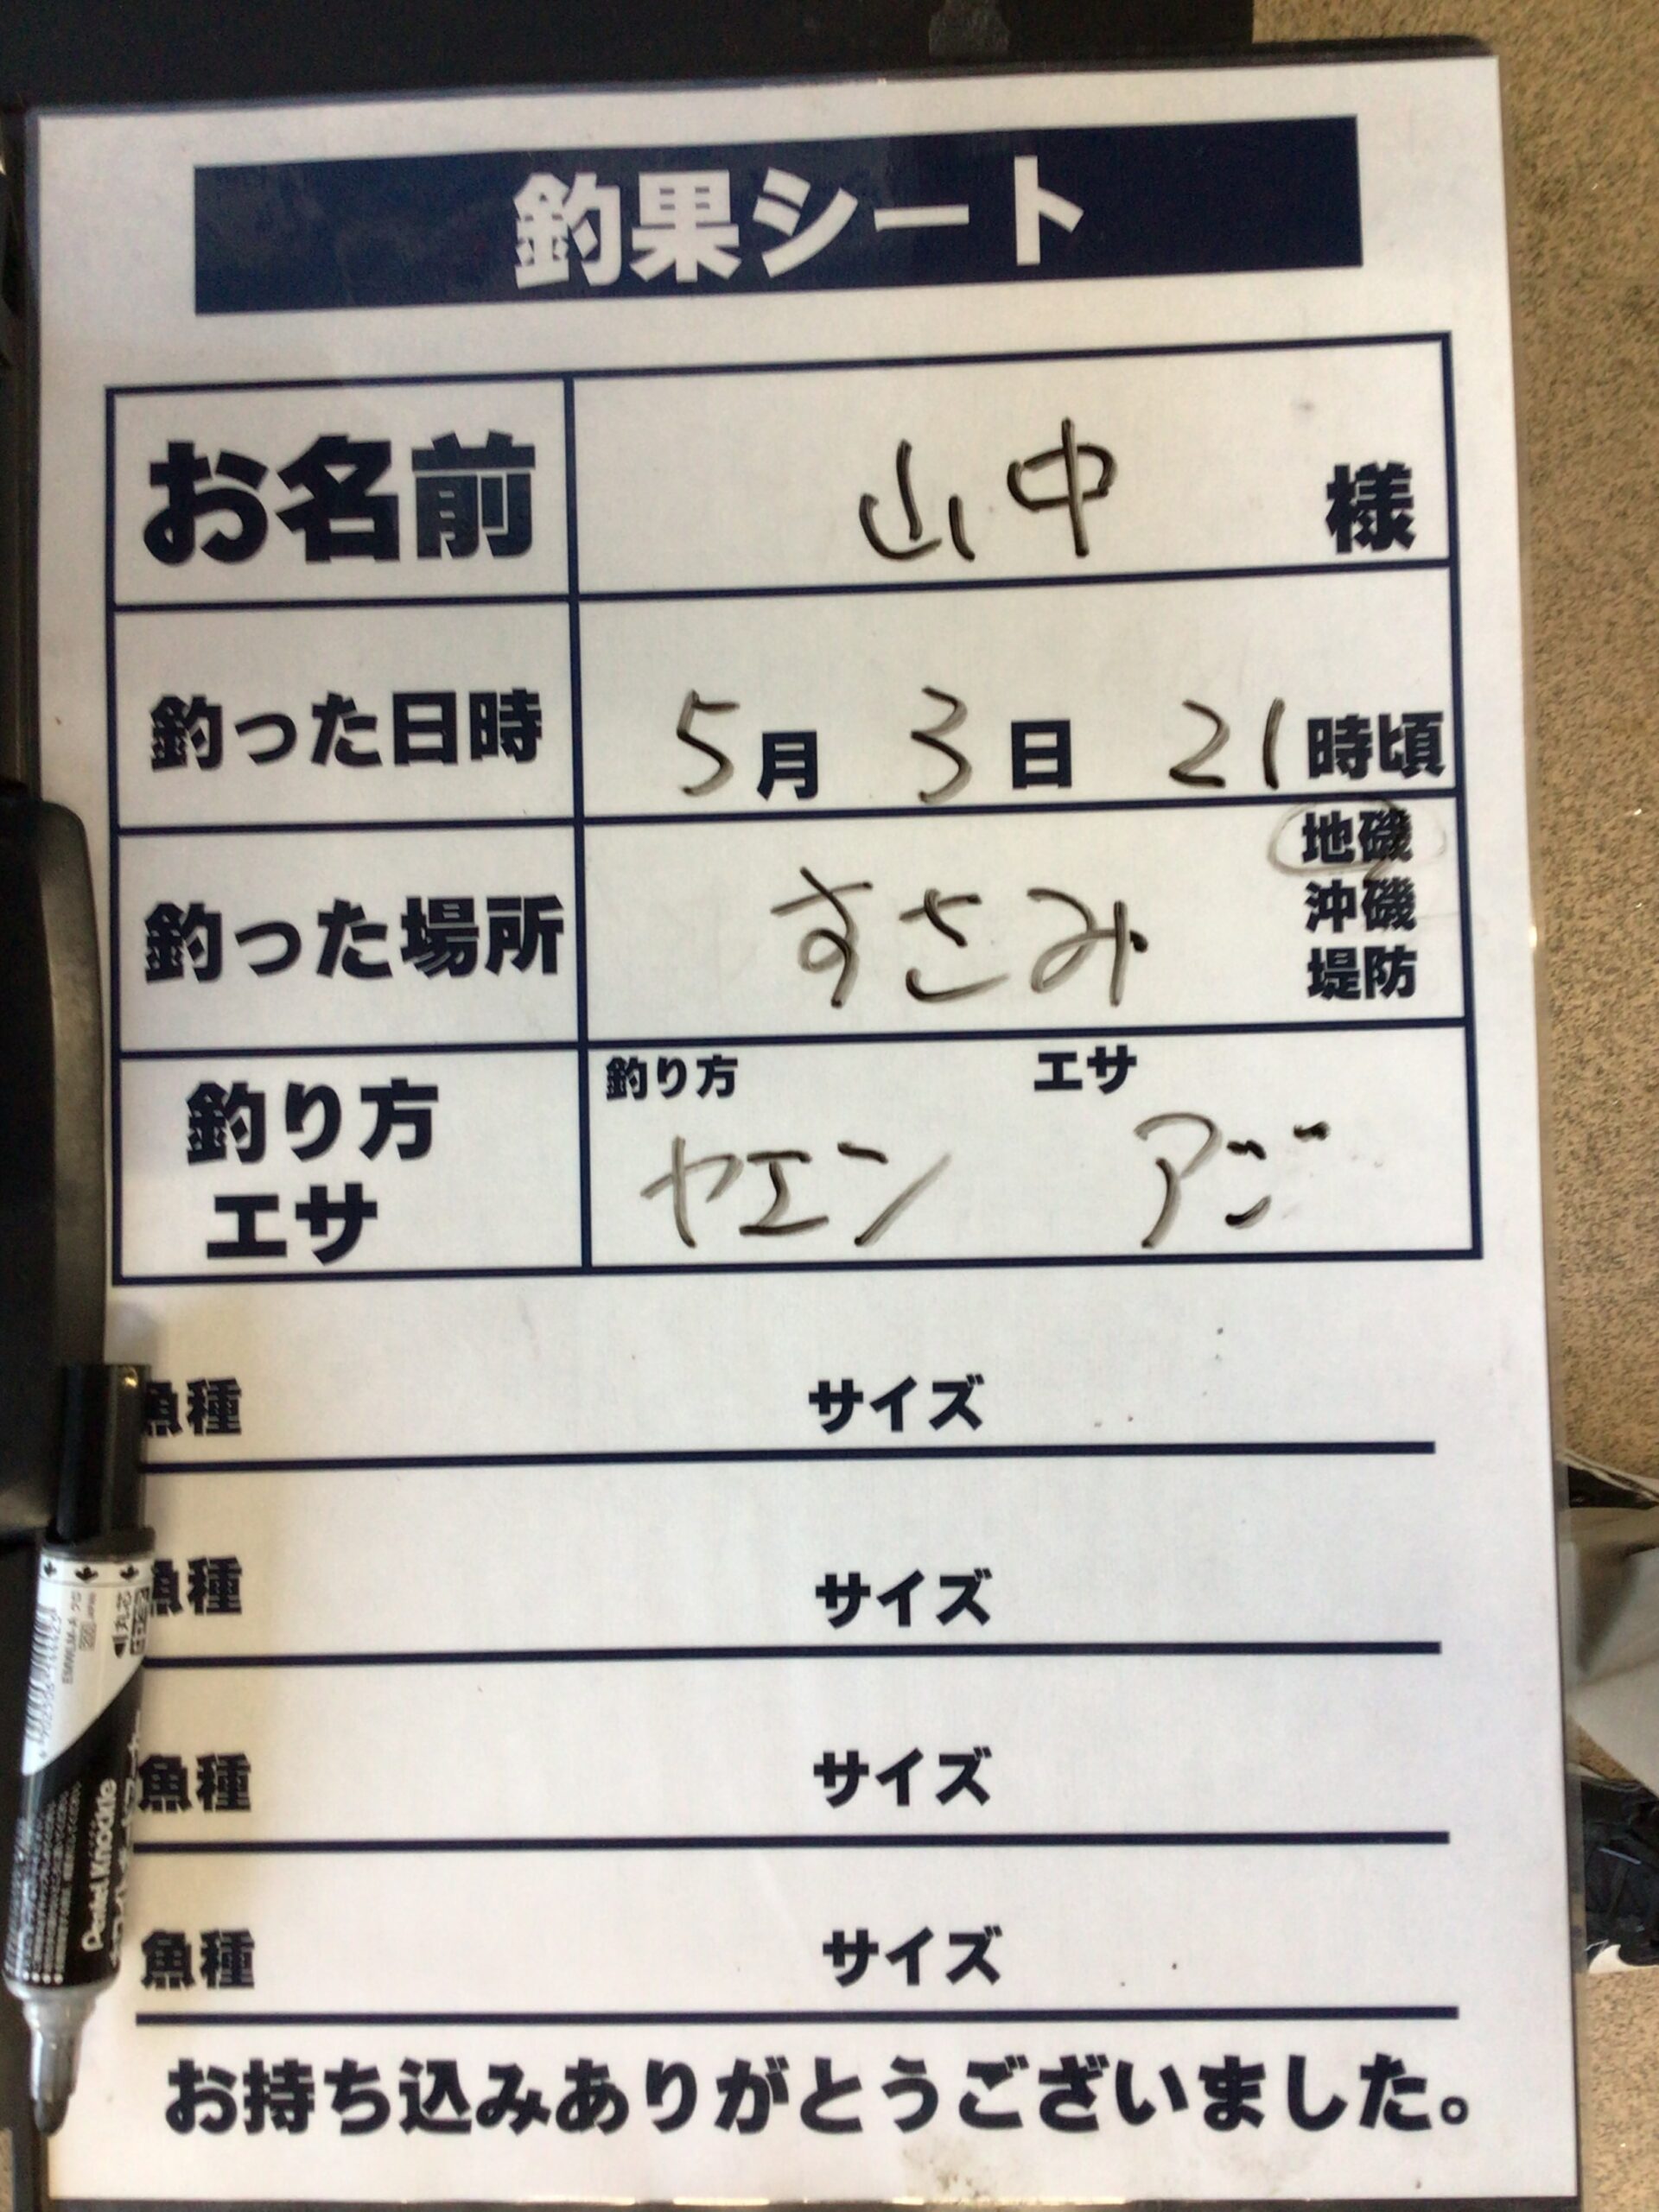 釣果シート
お名前 山中 様
釣った日時 5月 3日 21時頃
釣った場所 すさみ 地磯
沖磯
堤防
釣り方 エサ
釣り方 ヤエン アジ
エサ
魚種 サイズ
魚種 サイズ
魚種 サイズ
魚種 サイズ
お持ち込みありがとうございました。
丸芯
Pentel Knockle